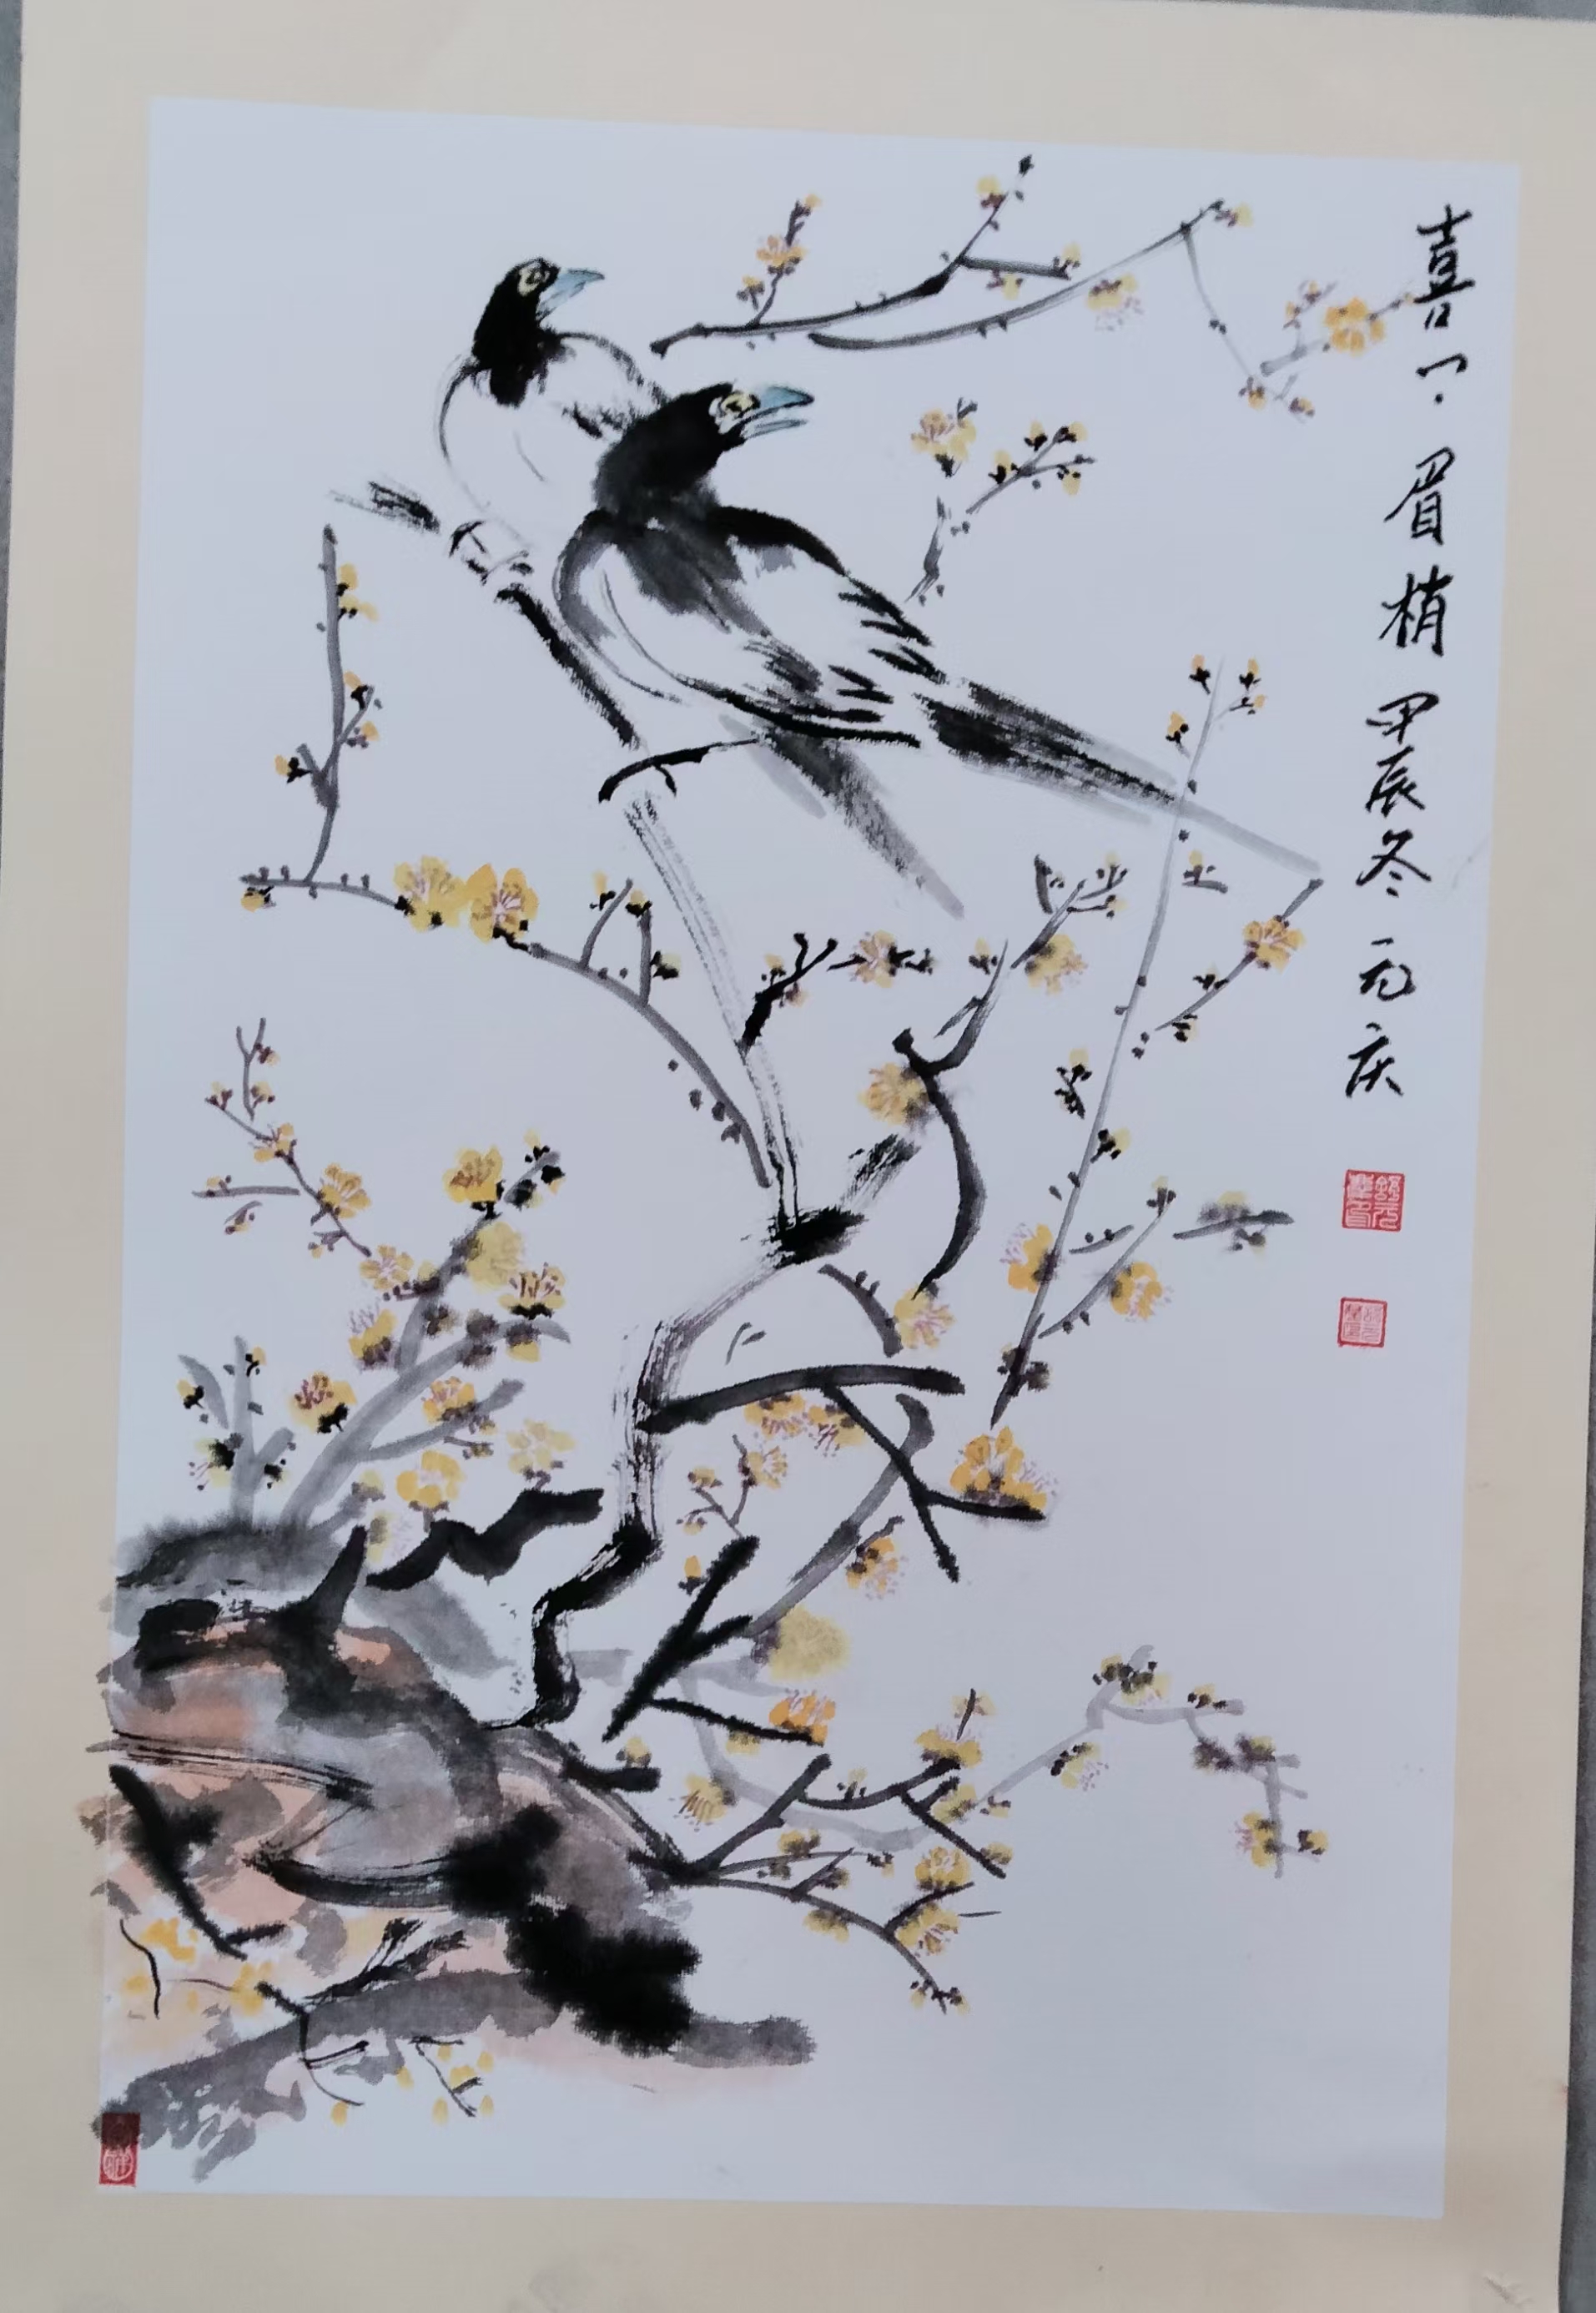 喜上眉梢 甲辰冬 元庆